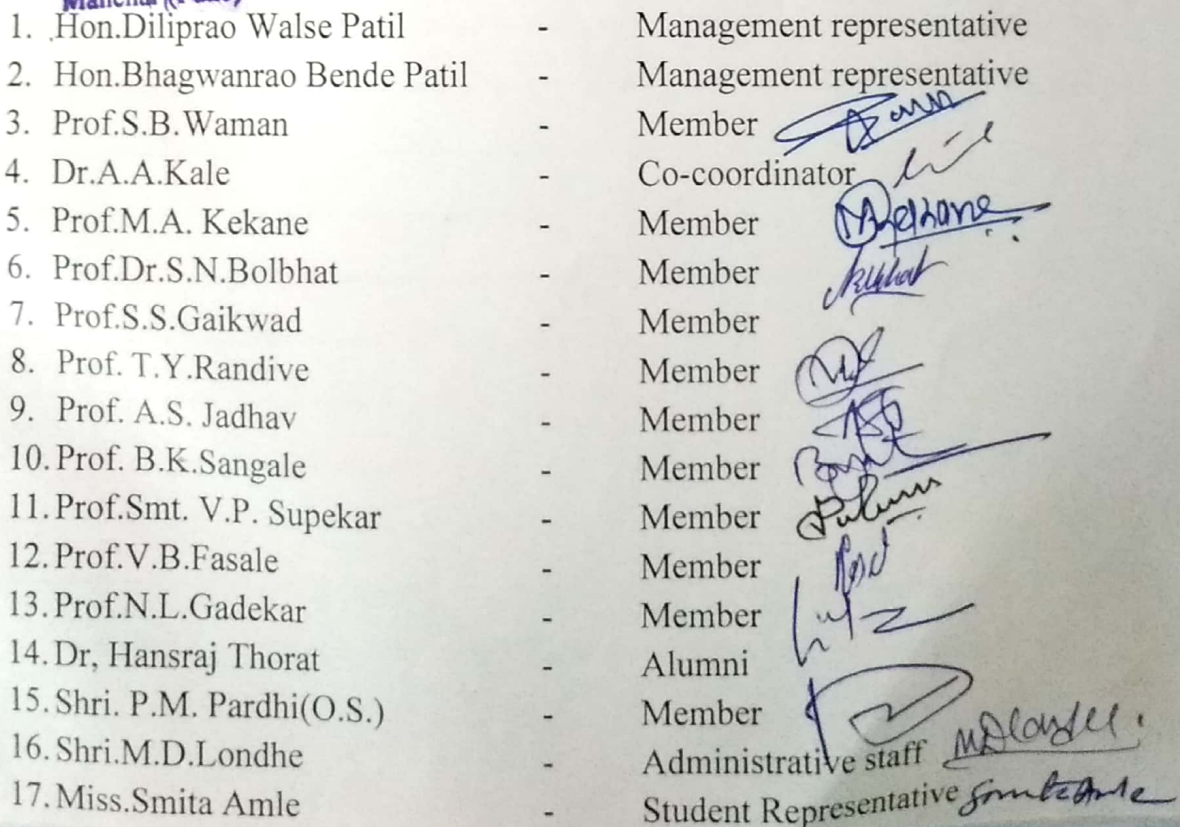 Manchar (Pune)
1. Hon.Diliprao Walse Patil - Management representative
2. Hon.Bhagwanrao Bende Patil - Management representative
3. Prof.S.B.Waman - Member
4. Dr.A.A.Kale - Co-coordinator
5. Prof.M.A. Kekane - Member
6. Prof.Dr.S.N.Bolbhat - Member
7. Prof.S.S.Gaikwad - Member
8. Prof. T.Y.Randive - Member
9. Prof. A.S. Jadhav - Member
10. Prof. B.K.Sangale - Member
11. Prof.Smt. V.P. Supekar - Member
12. Prof.V.B.Fasale - Member
13. Prof.N.L.Gadekar - Member
14. Dr, Hansraj Thorat - Alumni
15. Shri. P.M. Pardhi(O.S.) - Member
16. Shri.M.D.Londhe - Administrative staff MDLondhe.
17. Miss.Smita Amle - Student Representative Smita Amle